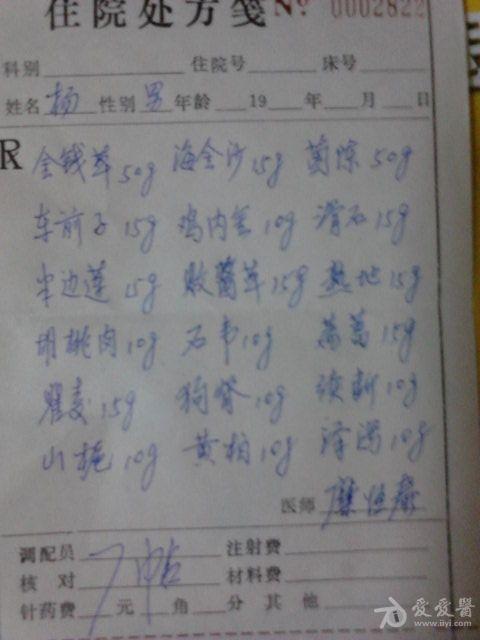 住院处方笺 No 0002822
科别 住院号 床号
姓名 杨 性别 男 年龄 19 年 月 日
R 金钱草50g 海金沙15g 茵陈50g
车前子15g 鸡内金10g 滑石15g
半边莲15g 败酱草15g 熟地15g
胡桃肉10g 石韦10g 15g
瞿麦15g 狗脊10g 续断10g
山栀10g 黄柏10g 泽泻10g
医师
调配员 注射费
核对 材料费
针药费 元 角 分 其他
7帖
爱爱醫
www.iiyi.com